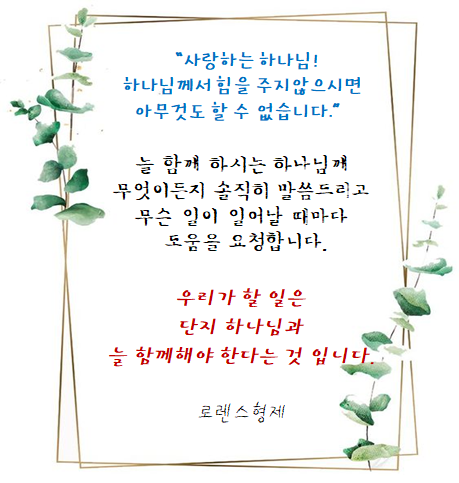 “사랑하는 하나님!
하나님께서 힘을 주지않으시면
아무것도 할 수 없습니다.”
늘 함께 하시는 하나님께
무엇이든지 솔직히 말씀드리고
무슨 일이 일어날 때마다
도움을 요청합니다.
우리가 할 일은
단지 하나님과
늘 함께해야 한다는 것 입니다.
로렌스형제